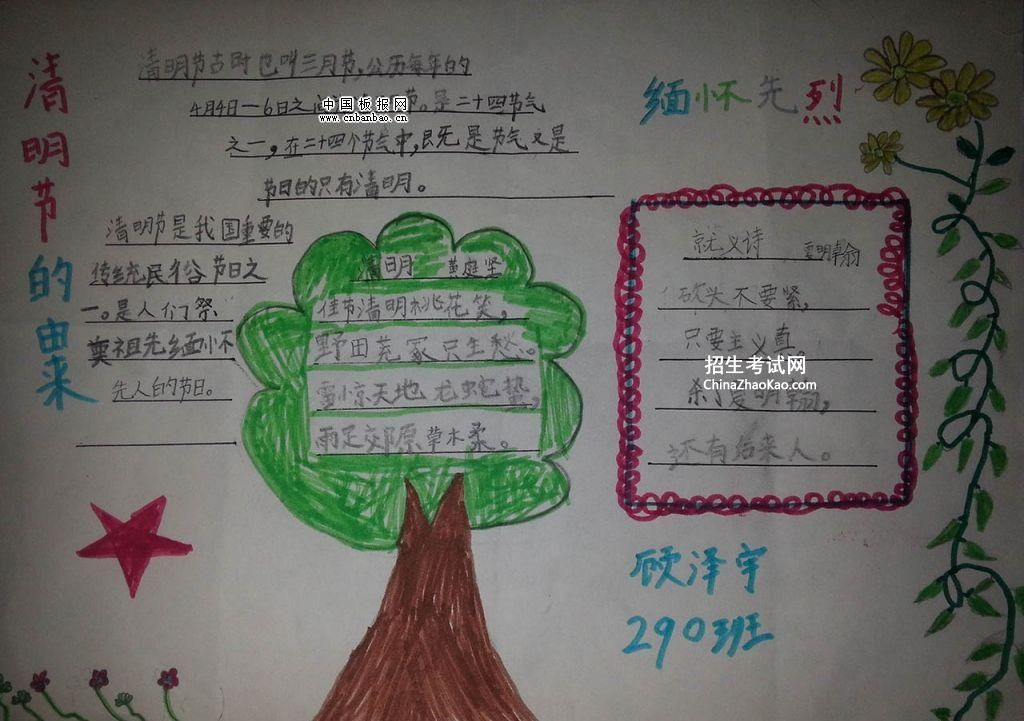 清明节的由来
清明节古时也叫三月节,公历每年的
4月4日—6日之
节。是二十四节气
之一,在二十四个节气中,既是节气又是
节日的只有清明。
清明节是我国重要的
传统民俗节日之
一。是人们祭
奠祖先缅怀
先人的节日。
中国板报网
www.cnbanbao.cn
清明 黄庭坚
佳节清明桃花笑,
野田荒冢只生愁。
雷惊天地龙蛇蛰,
雨足郊原草木柔。
缅怀先烈
就义诗 夏明翰
砍头不要紧,
只要主义真
杀了夏明翰,
还有后来人。
招生考试网
ChinaZhaoKao.com
顾泽宇
290班